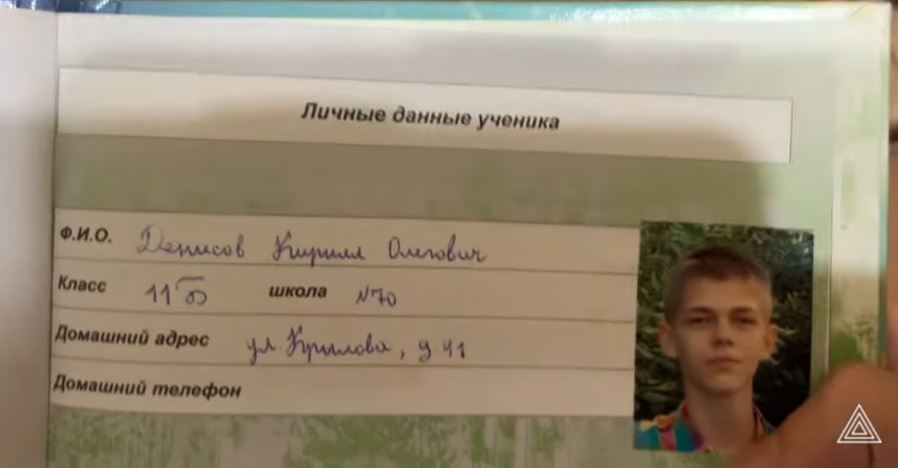 Личные данные ученика
Ф.И.О. Денисов Кирилл Олегович
Класс 11 б школа №70
Домашний адрес ул Крылова, д 41
Домашний телефон